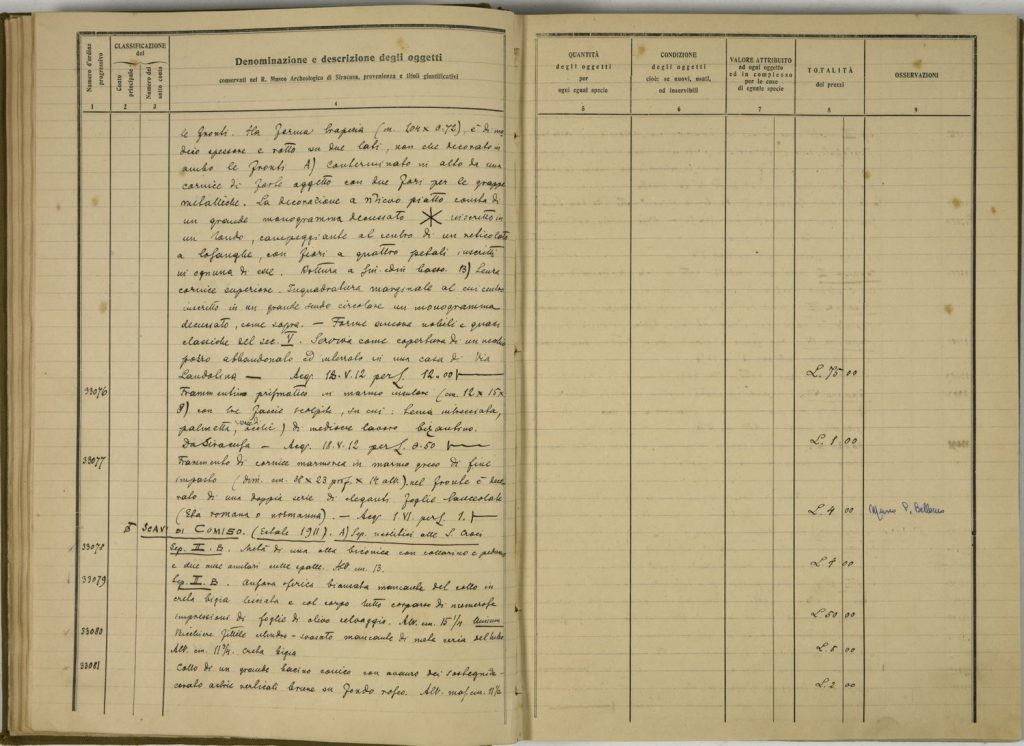 Numero d'ordine progressivo
CLASSIFICAZIONE
del
Conto principale
Numero del sotto conto
Denominazione e descrizione degli oggetti
conservati nel R. Museo Archeologico di Siracusa, provenienza e titoli giustificativi
1 2 3 4
le fronti. Ha forma (m. 104 x 0.72), è di me
dio spessore e rotto su due lati, non che decorato in
ambo le fronti A) Conterminato in alto da una
cornice di forte aggetto con due fori per le grappe
metalliche. La decorazione a rilievo piatto consta di
un grande monogramma decussato inscritto in
un tondo, campeggiante al centro di un reticolato
a losanghe, con fiori a quattro petali inscritti
in ognuna di esse. Rottura a basso. B) Senza
cornice superiore. Inquadratura marginale al cui centro
inscritto in un grande scudo circolare un monogramma
decussato, come sopra. — Forme ancora nobili e quasi
classiche del sec. V. Serviva come copertura di un vecchio
pozzo abbandonato ed interrato in una casa di Via
Landolina — Acq. 18.V.12 per L. 12.00
33076 Frammentino prismatico in marmo (cm. 12 x 15 x
8) con tre fascie scolpite, su cui: intrecciata,
palmetta, ) di mediocre lavoro bizantino.
Da Siracusa — Acq. 18.V.12 per L. 0.50
33077 Frammento di cornice marmorea in marmo greco di fine
impasto (dim. cm. 38 x 23 prof. x 14 alt.) nel fronte è deco
rato di una doppia serie di eleganti foglie lanceolate
(Età romana o normanna). — Acq. 1.VI. per L. 1.
SCAVI DI COMISO. (Estate 1911). A) Sep. neolitici alle S. Croci
33078 Sep. II. B. Metà di una olla biconica con collarino e
e due anse anulari sulle spalle. Alt. cm. 13.
33079 Sep. I. B. Anfora sferica biansata mancante del collo in
creta bigia e col corpo tutto cosparso di numerose
impressioni di foglie di olivo selvaggio. Alt. cm. 15 1/2
33080 Bicchiere fittile cilindro - svasato mancante di metà circa del
Alt. cm. 11 Creta bigia
33081 Collo di un grande bacino conico con avanzo dei
verticali brune su fondo roseo. Alt. mass. cm. 11 1/2
QUANTITÀ
degli oggetti
per
ogni egual specie
CONDIZIONE
degli oggetti
cioè: se nuovi, usati,
od inservibili
VALORE ATTRIBUITO
ad ogni oggetto
ed in complesso
per le cose
di eguale specie
TOTALITÀ
dei prezzi
OSSERVAZIONI
5 6 7 8 9
L. 75 00
L. 1 00
L. 4 00
L. 4 00
L. 50 00
L. 5 00
L. 2 00